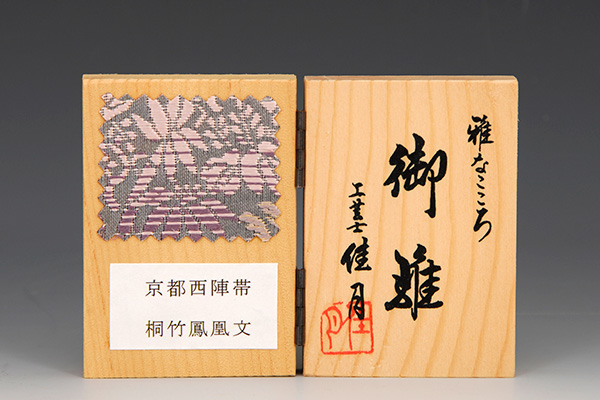 京都西陣帯
桐竹鳳凰文
雅なこころ
御雛
工芸士 佳月